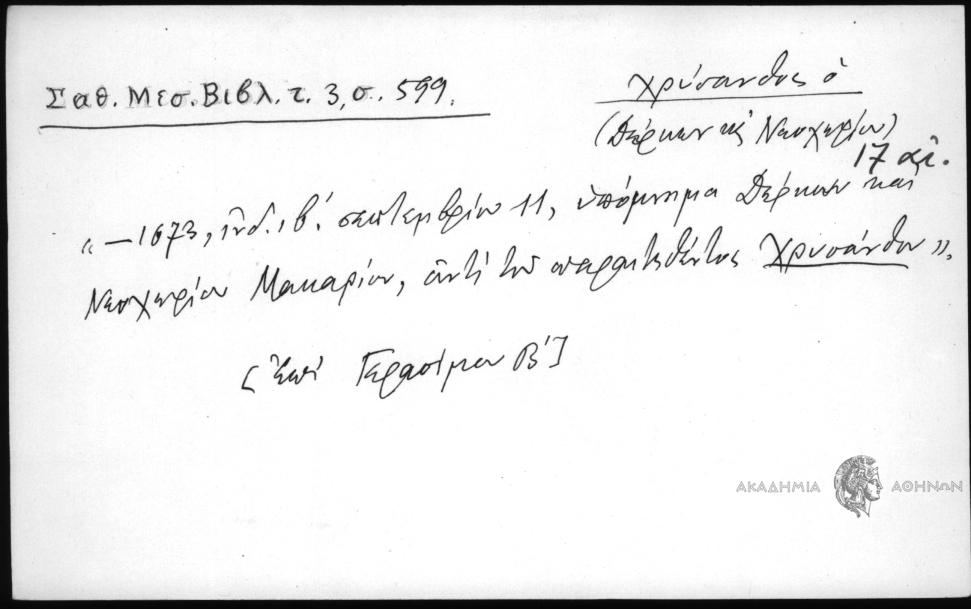 Σαθ. Μεσ. Βιβλ. τ. 3, σ. 599.
Χρύσανθος ὁ
(Δέρκων κ̀ Νεοχωρίου)
17 αἰ.
"—1673, ἰνδ. ιβ΄. σεπτεμβρίου 11, ὑπόμνημα Δέρκων καὶ
Νεοχωρίου Μακαρίου, ἀντὶ τοῦ παραιτηθέντος Χρυσάνθου".
[Ἐπὶ Γερασίμου Β΄]
ΑΚΑΔΗΜΙΑ ΑΘΗΝΩΝ